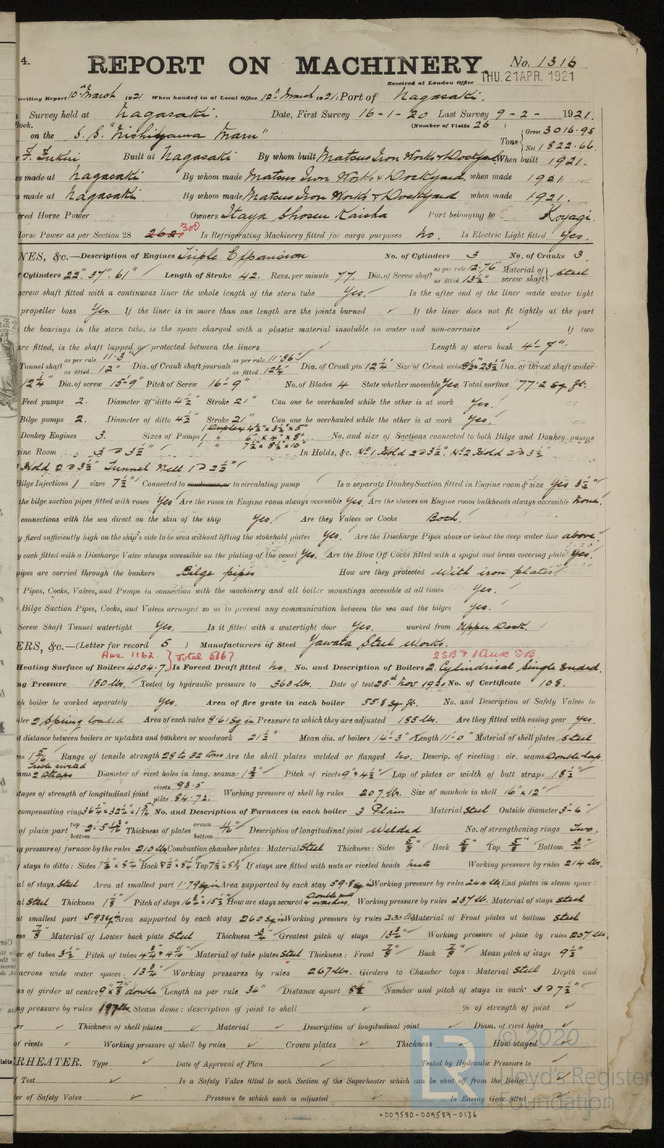 4. REPORT ON MACHINERY. No. 1316
Received at London Office THU. 21 APR. 1921
writing Report 10th March 1921 When handed in at Local Office 12th March 1921. Port of Nagasaki.
Survey held at Nagasaki. Date, First Survey 16-1-20 Last Survey 9-2- 1921.
Book. (Number of Visits 26
on the S.S. "Nishiyama Maru" Tons Gross 3016.95
Net 1822.66
F. Fukui Built at Nagasaki By whom built Matsuo Iron Works & Dockyard When built 1921.
es made at Nagasaki By whom made Matsuo Iron Works & Dockyard when made 1921.
s made at Nagasaki By whom made Matsuo Iron Works & Dockyard when made 1921.
ered Horse Power Owners Itaya Shosen Kaisha Port belonging to Koyagi.
Horse Power as per Section 28 262 300 Is Refrigerating Machinery fitted for cargo purposes no. Is Electric Light fitted Yes.
NES, &c.—Description of Engines Triple Expansion No. of Cylinders 3 No. of Cranks 3.
Cylinders 22" 37" 61" Length of Stroke 42. Revs. per minute 77. Dia. of Screw shaft as per rule 12.76" as fitted 13½" Material of screw shaft Steel
screw shaft fitted with a continuous liner the whole length of the stern tube Yes. Is the after end of the liner made water tight
propeller boss Yes. If the liner is in more than one length are the joints burned ✓ If the liner does not fit tightly at the part
the bearings in the stern tube, is the space charged with a plastic material insoluble in water and non-corrosive ✓ If two
are fitted, is the shaft lapped or protected between the liners Length of stern bush 4'-7".
Tunnel shaft as per rule 11.3" as fitted 12" Dia. of Crank shaft journals as per rule 11.86" as fitted 12¼" Dia. of Crank pin 12¼" Size of Crank webs Dia. of thrust shaft under
12¼" Dia. of screw 15'-9" Pitch of Screw 16'-9" No. of Blades 4 State whether moveable Yes. Total surface 77.2 sq. ft.
Feed pumps 2. Diameter of ditto 4½" Stroke 21" Can one be overhauled while the other is at work Yes.
Bilge pumps 2. Diameter of ditto 4½" Stroke 21" Can one be overhauled while the other is at work Yes.
Donkey Engines 3. Sizes of Pumps No. and size of Suctions connected to both Bilge and Donkey pumps
ine Room 3 @ 3½" In Holds, &c. No 1 Hold 2 @ 3½" No 2 Hold 2 @ 3½"
Hold 2 @ 3½" Tunnel Well 1 @ 2½"
Bilge Injections 1 sizes 7½" Connected to circulating pump ✓ Is a separate Donkey Suction fitted in Engine room & size Yes 3½"
the bilge suction pipes fitted with roses Yes Are the roses in Engine room always accessible Yes. Are the sluices on Engine room bulkheads always accessible none.
connections with the sea direct on the skin of the ship Yes. Are they Valves or Cocks Both.
fixed sufficiently high on the ship's side to be seen without lifting the stokehold plates Yes. Are the Discharge Pipes above or below the deep water line above.
y each fitted with a Discharge Valve always accessible on the plating of the vessel Yes. Are the Blow Off Cocks fitted with a spigot and brass covering plate Yes.
pipes are carried through the bunkers Bilge pipes How are they protected With iron plates
Pipes, Cocks, Valves, and Pumps in connection with the machinery and all boiler mountings accessible at all times Yes.
Bilge Suction Pipes, Cocks, and Valves arranged so as to prevent any communication between the sea and the bilges Yes.
Screw Shaft Tunnel watertight Yes. Is it fitted with a watertight door Yes. worked from Upper Deck.
ERS, &c.—(Letter for record S) Manufacturers of Steel Yawata Steel Works.
Aux 1162. Total 5167 2SB & 1 Aux SB
Heating Surface of Boilers 4004.7. Is Forced Draft fitted no. No. and Description of Boilers 2 Cylindrical Single Ended.
ng Pressure 180 lbs. Tested by hydraulic pressure to 360 lbs. Date of test 25th Nov 1920 No. of Certificate 108.
ch boiler be worked separately Yes. Area of fire grate in each boiler 55.8 sq. ft. No. and Description of Safety Valves to
ler 2 Spring loaded Area of each valve 8.61 sq in Pressure to which they are adjusted 185 lbs. Are they fitted with easing gear Yes.
t distance between boilers or uptakes and bunkers or woodwork 21½" Mean dia. of boilers 14'-3" Length 11'-0" Material of shell plates Steel
Range of tensile strength 28 to 32 tons Are the shell plates welded or flanged no. Descrip. of riveting: cir. seams Double Lap
ams 2 Straps Diameter of rivet holes in long. seams 1⅜" Pitch of rivets 9" & 4½" Lap of plates or width of butt straps 18½"
tages of strength of longitudinal joint rivets 93.5 plate 84.72. Working pressure of shell by rules 207 lbs. Size of manhole in shell 16" x 12"
compensating ring No. and Description of Furnaces in each boiler 3 Plain Material Steel Outside diameter 3'-6"
of plain part Thickness of plates Description of longitudinal joint Welded No. of strengthening rings Two.
ng pressure of furnace by the rules 210 lbs Combustion chamber plates: Material Steel Thickness: Sides ⅝" Back ⅝" Top ⅝" Bottom ¾"
f stays to ditto: Sides Back Top If stays are fitted with nuts or riveted heads nuts Working pressure by rules 214 lbs.
al of stays Steel Area at smallest part 1.79 sq in Area supported by each stay Working pressure by rules 244 lbs End plates in steam space:
al Steel Thickness 1⅛" Pitch of stays How are stays secured Double nuts & washers. Working pressure by rules 237 lbs. Material of stays Steel
at smallest part Area supported by each stay 260 sq in Working pressure by rules 230 lbs Material of Front plates at bottom Steel
ess ⅞" Material of Lower back plate Steel Thickness Greatest pitch of stays 13¾" Working pressure of plate by rules 207 lbs.
er of tubes 3½" Pitch of tubes Material of tube plates Steel Thickness: Front ⅞" Back ⅞" Mean pitch of stays 9½"
across wide water spaces: 13¾" Working pressures by rules 267 lbs. Girders to Chamber tops: Material Steel Depth and
ss of girder at centre double Length as per rule 34" Distance apart 8½" Number and pitch of stays in each 3 @ 7½"
g pressure by rules 197 lbs Steam dome: description of joint to shell ✓ % of strength of joint ✓
er ✓ Thickness of shell plates ✓ Material ✓ Description of longitudinal joint ✓ Diam. of rivet holes ✓
of rivets ✓ Working pressure of shell by rules ✓ Crown plates ✓ Thickness ✓ How stayed ✓
RHEATER. Type ✓ Date of Approval of Plan ✓ Tested by Hydraulic Pressure to ✓
f Test ✓ Is a Safety Valve fitted to each Section of the Superheater which can be shut off from the Boiler ✓
er of Safety Valve ✓ Pressure to which each is adjusted ✓ Is Easing Gear fitted ✓
© 2020
Lloyd's Register
Foundation
009580-009589-0136